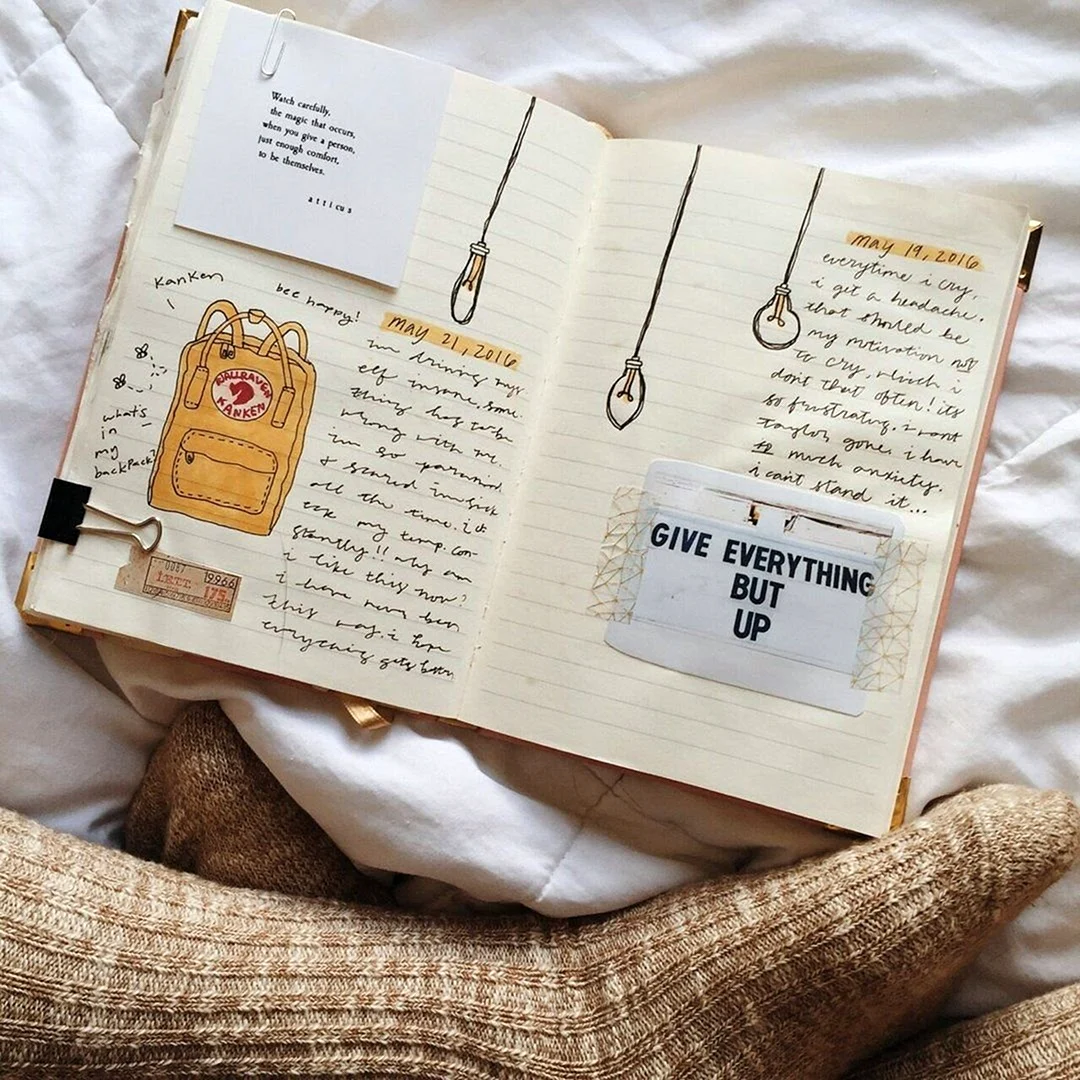 Watch carefully,
the magic that occurs,
when you give a person,
just enough comfort,
to be themselves.
atticus
Kanken
bee happy!
FJALLRAVEN
KANKEN
what's
in
my
backpack?
0087
19966
LETT.
175
may 21, 2016
im driving mys
elf insane, some
thing has to be
wrong with me.
im so paranoid
& scared im sick
all the time. i ch
eck my temp. con-
stantly!! why am
i like this now?
i have never been
this way. i hope
everything gets better
may 19, 2016
everytime i cry,
i get a headache.
that should be
my motivation not
to cry, which i
don't that often! its
so frustrating. i want
taylor gone. i have
so much anxiety.
i cant stand it...
GIVE EVERYTHING
BUT
UP